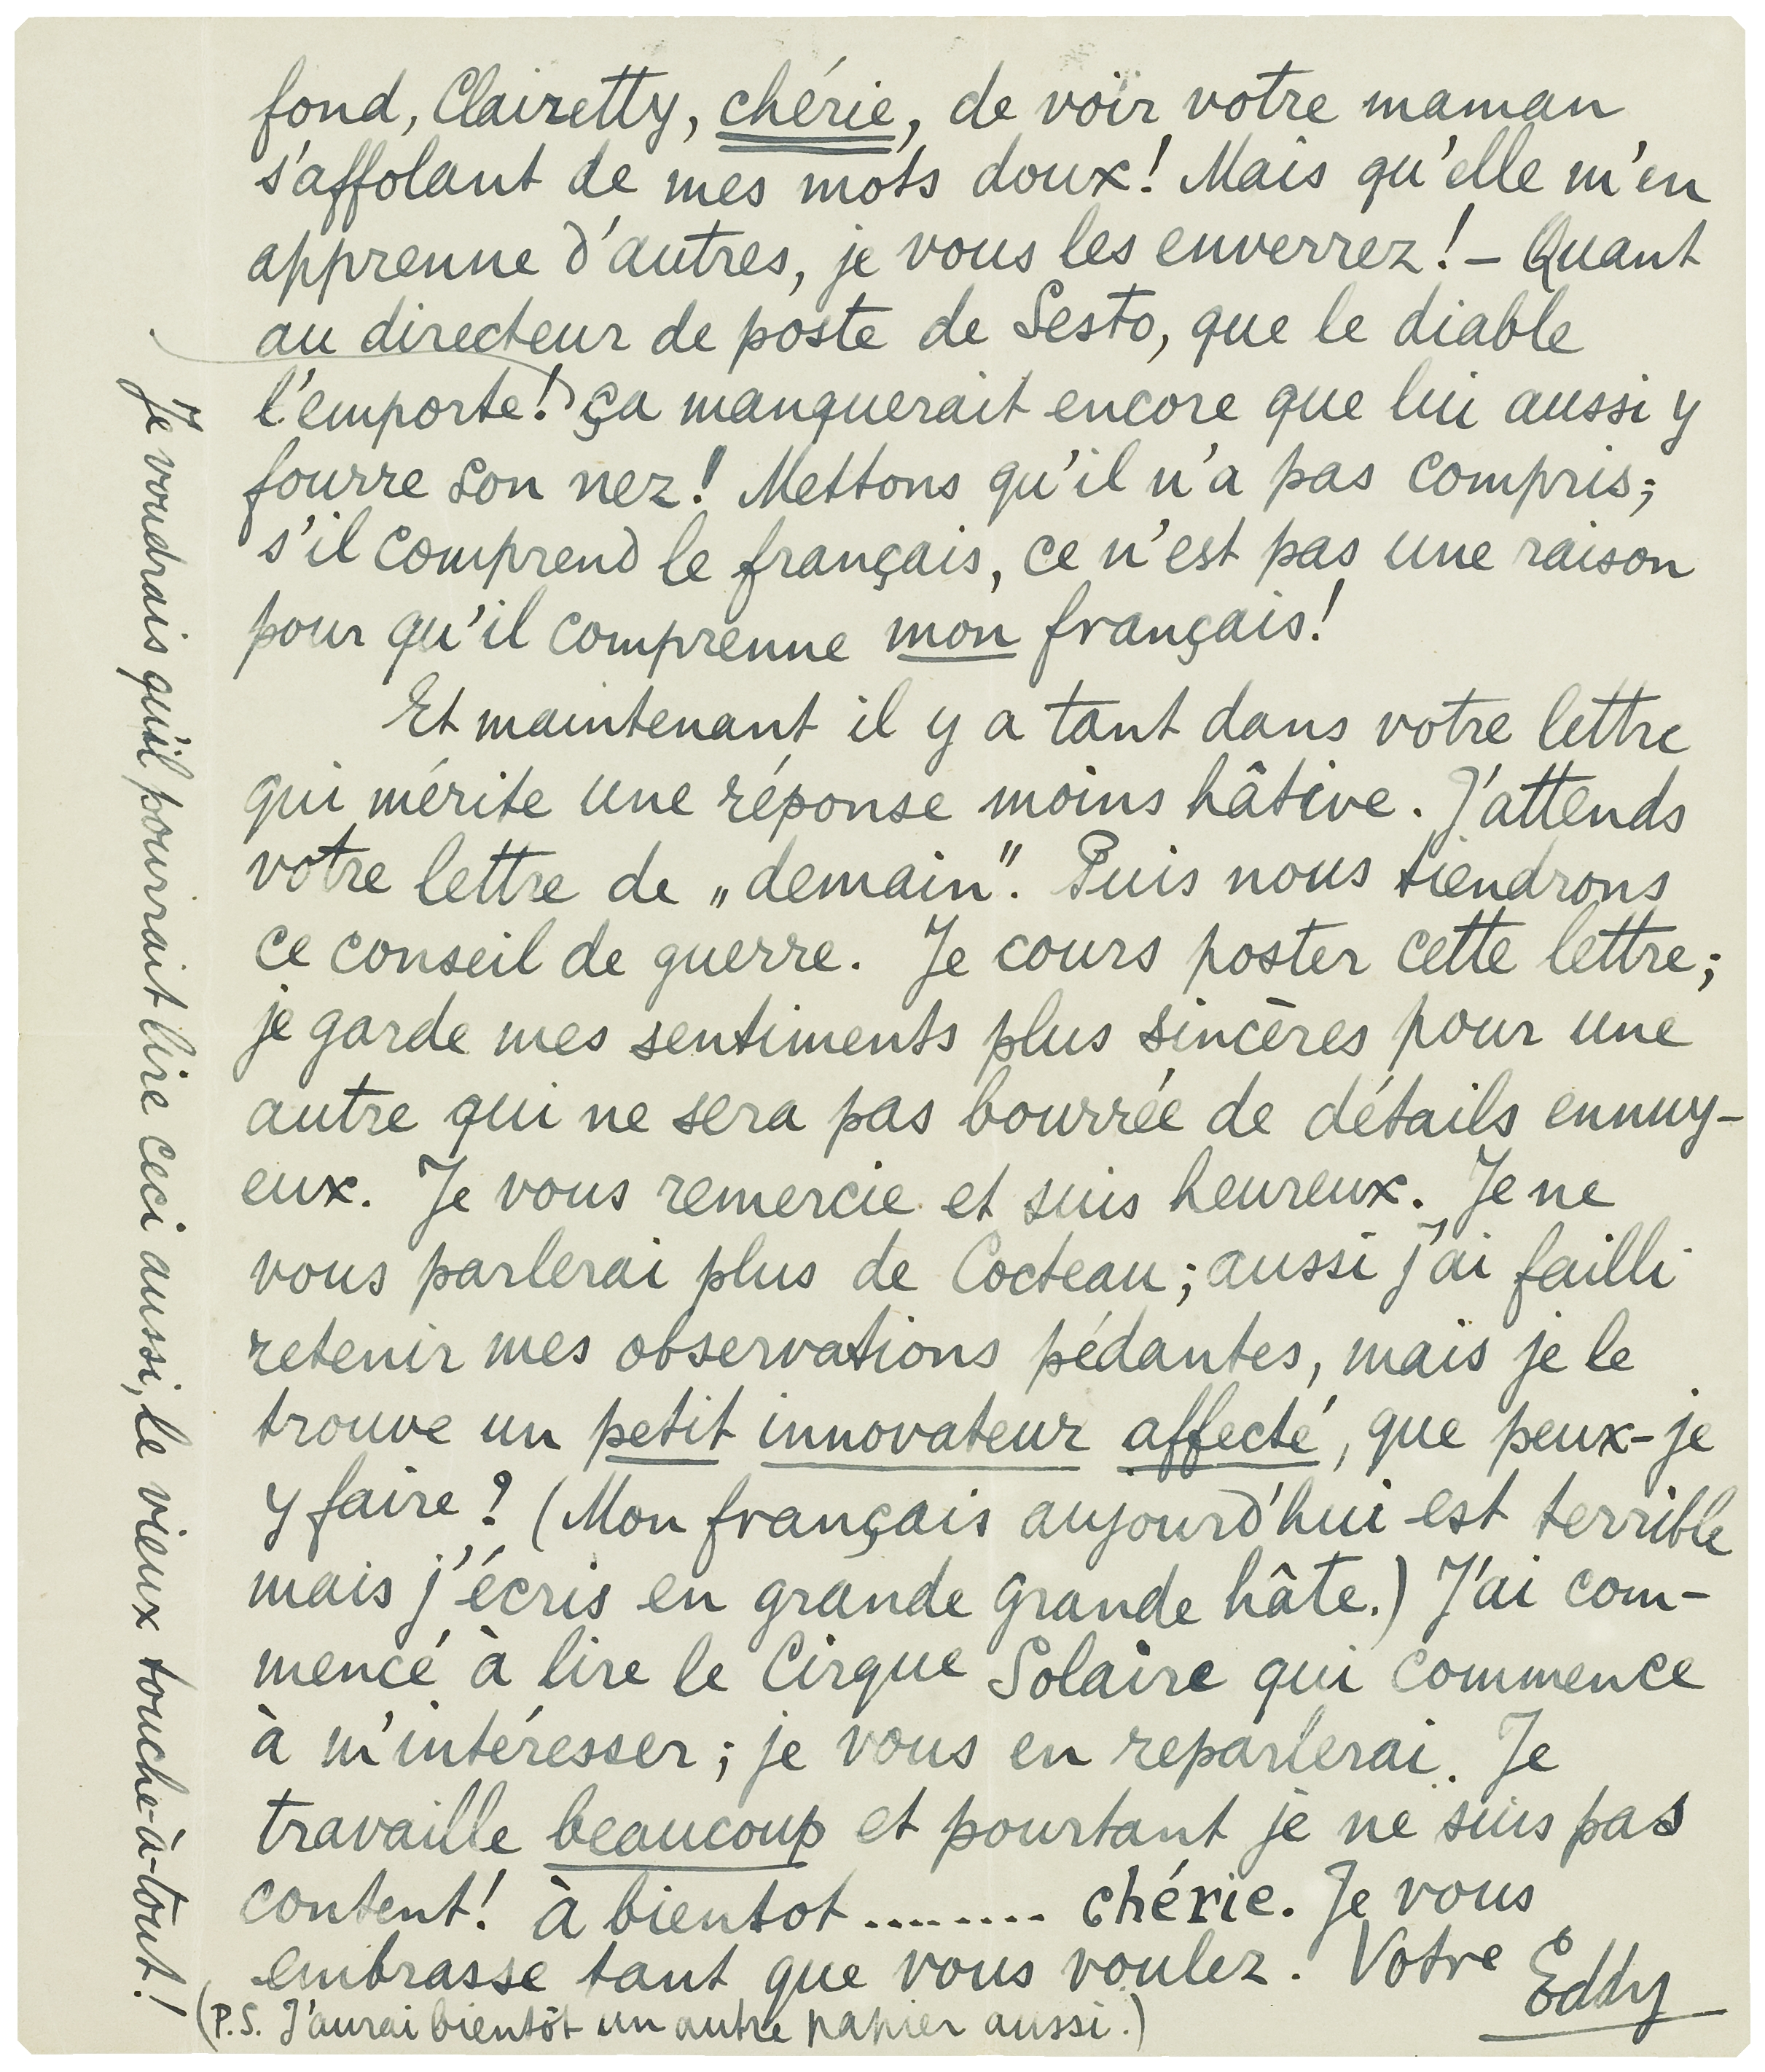 fond, Clairetty, chérie, de voir votre maman
s'affolant de mes mots doux! Mais qu'elle m'en
apprenne d'autres, je vous les enverrez! – Quant
au directeur de poste de Sesto, que le diable
l'emporte! ça manquerait encore que lui aussi y
fourre son nez! Mettons qu'il n'a pas compris;
s'il comprend le français, ce n'est pas une raison
pour qu'il comprenne mon français!
Et maintenant il y a tant dans votre lettre
qui mérite une réponse moins hâtive. J'attends
votre lettre de „demain". Puis nous tiendrons
ce conseil de guerre. Je cours poster cette lettre;
je garde mes sentiments plus sincères pour une
autre qui ne sera pas bourrée de détails ennuy-
eux. Je vous remercie et suis heureux. Je ne
vous parlerai plus de Cocteau; aussi j'ai failli
retenir mes observations pédantes, mais je le
trouve un petit innovateur affecté, que peux-je
y faire? (Mon français aujourd'hui est terrible
mais j'écris en grande grande hâte.) J'ai com-
mencé à lire le Cirque Solaire qui commence
à m'intéresser; je vous en reparlerai. Je
travaille beaucoup et pourtant je ne suis pas
content! à bientot ........ chérie. Je vous
embrasse tant que vous voulez. Votre Eddy
(P.S. J'aurai bientôt un autre papier aussi.)
Je voudrais qu'il pourrait lire ceci aussi, le vieux touche-à-tout!